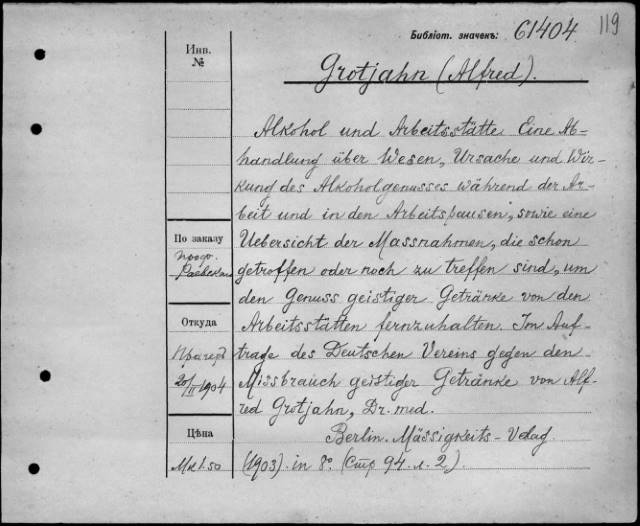 Библіот. значекъ: 61404 119
Инв.
№
Grotjahn (Alfred).
Alkohol und Arbeitsstätte Eine Ab-
handlung über Wesen, Ursache und Wir-
kung des Alkoholgenusses während der Ar-
beit und in den Arbeitspausen, sowie eine
Uebersicht der Massnahmen, die schon
getroffen oder noch zu treffen sind, um
den Genuss geistiger Getränke von den
Arbeitsstätten fernzuhalten. Im Auf-
trage des Deutschen Vereins gegen den
Missbrauch geistiger Getränke von Alf-
red Grotjahn, Dr. med.
Berlin. Mässigkeits-Verlag
(1903) in 8º (Стр 94 л. 2).
По заказу
проф.
Откуда
20/II 1904
Цѣна
Mk 1.50